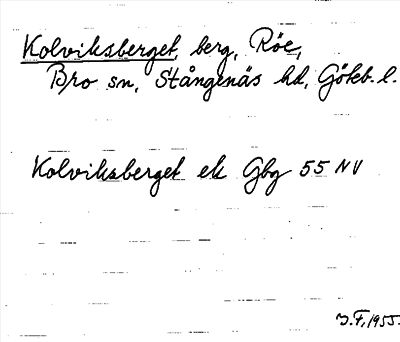 Kolviksberget, berg, Röe,
Bro sn, Stångenäs hd, Göteb. l.
Kolviksberget ek Gbg 55 NV
J.F. 1955.